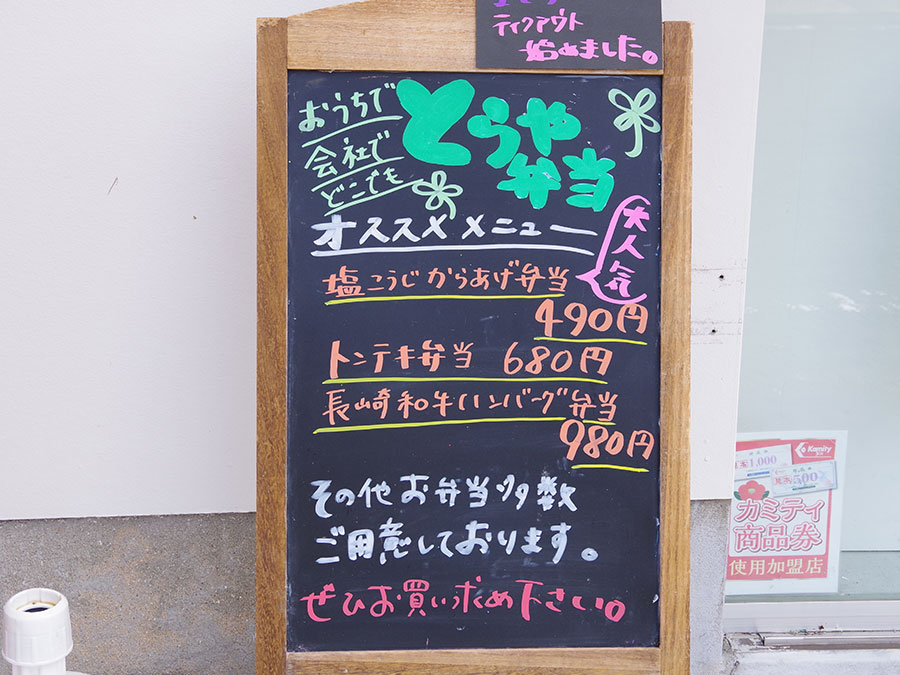 テイクアウト
始めました。
おうちで
会社で
どこでも
とらや
弁当
オススメメニュー
大人気
塩こうじからあげ弁当
490円
トンテキ弁当 680円
長崎和牛ハンバーグ弁当
980円
その他お弁当多数
ご用意しております。
ぜひお買い求め下さい。
Kamity
1,000
500
カミティ
商品券
使用加盟店